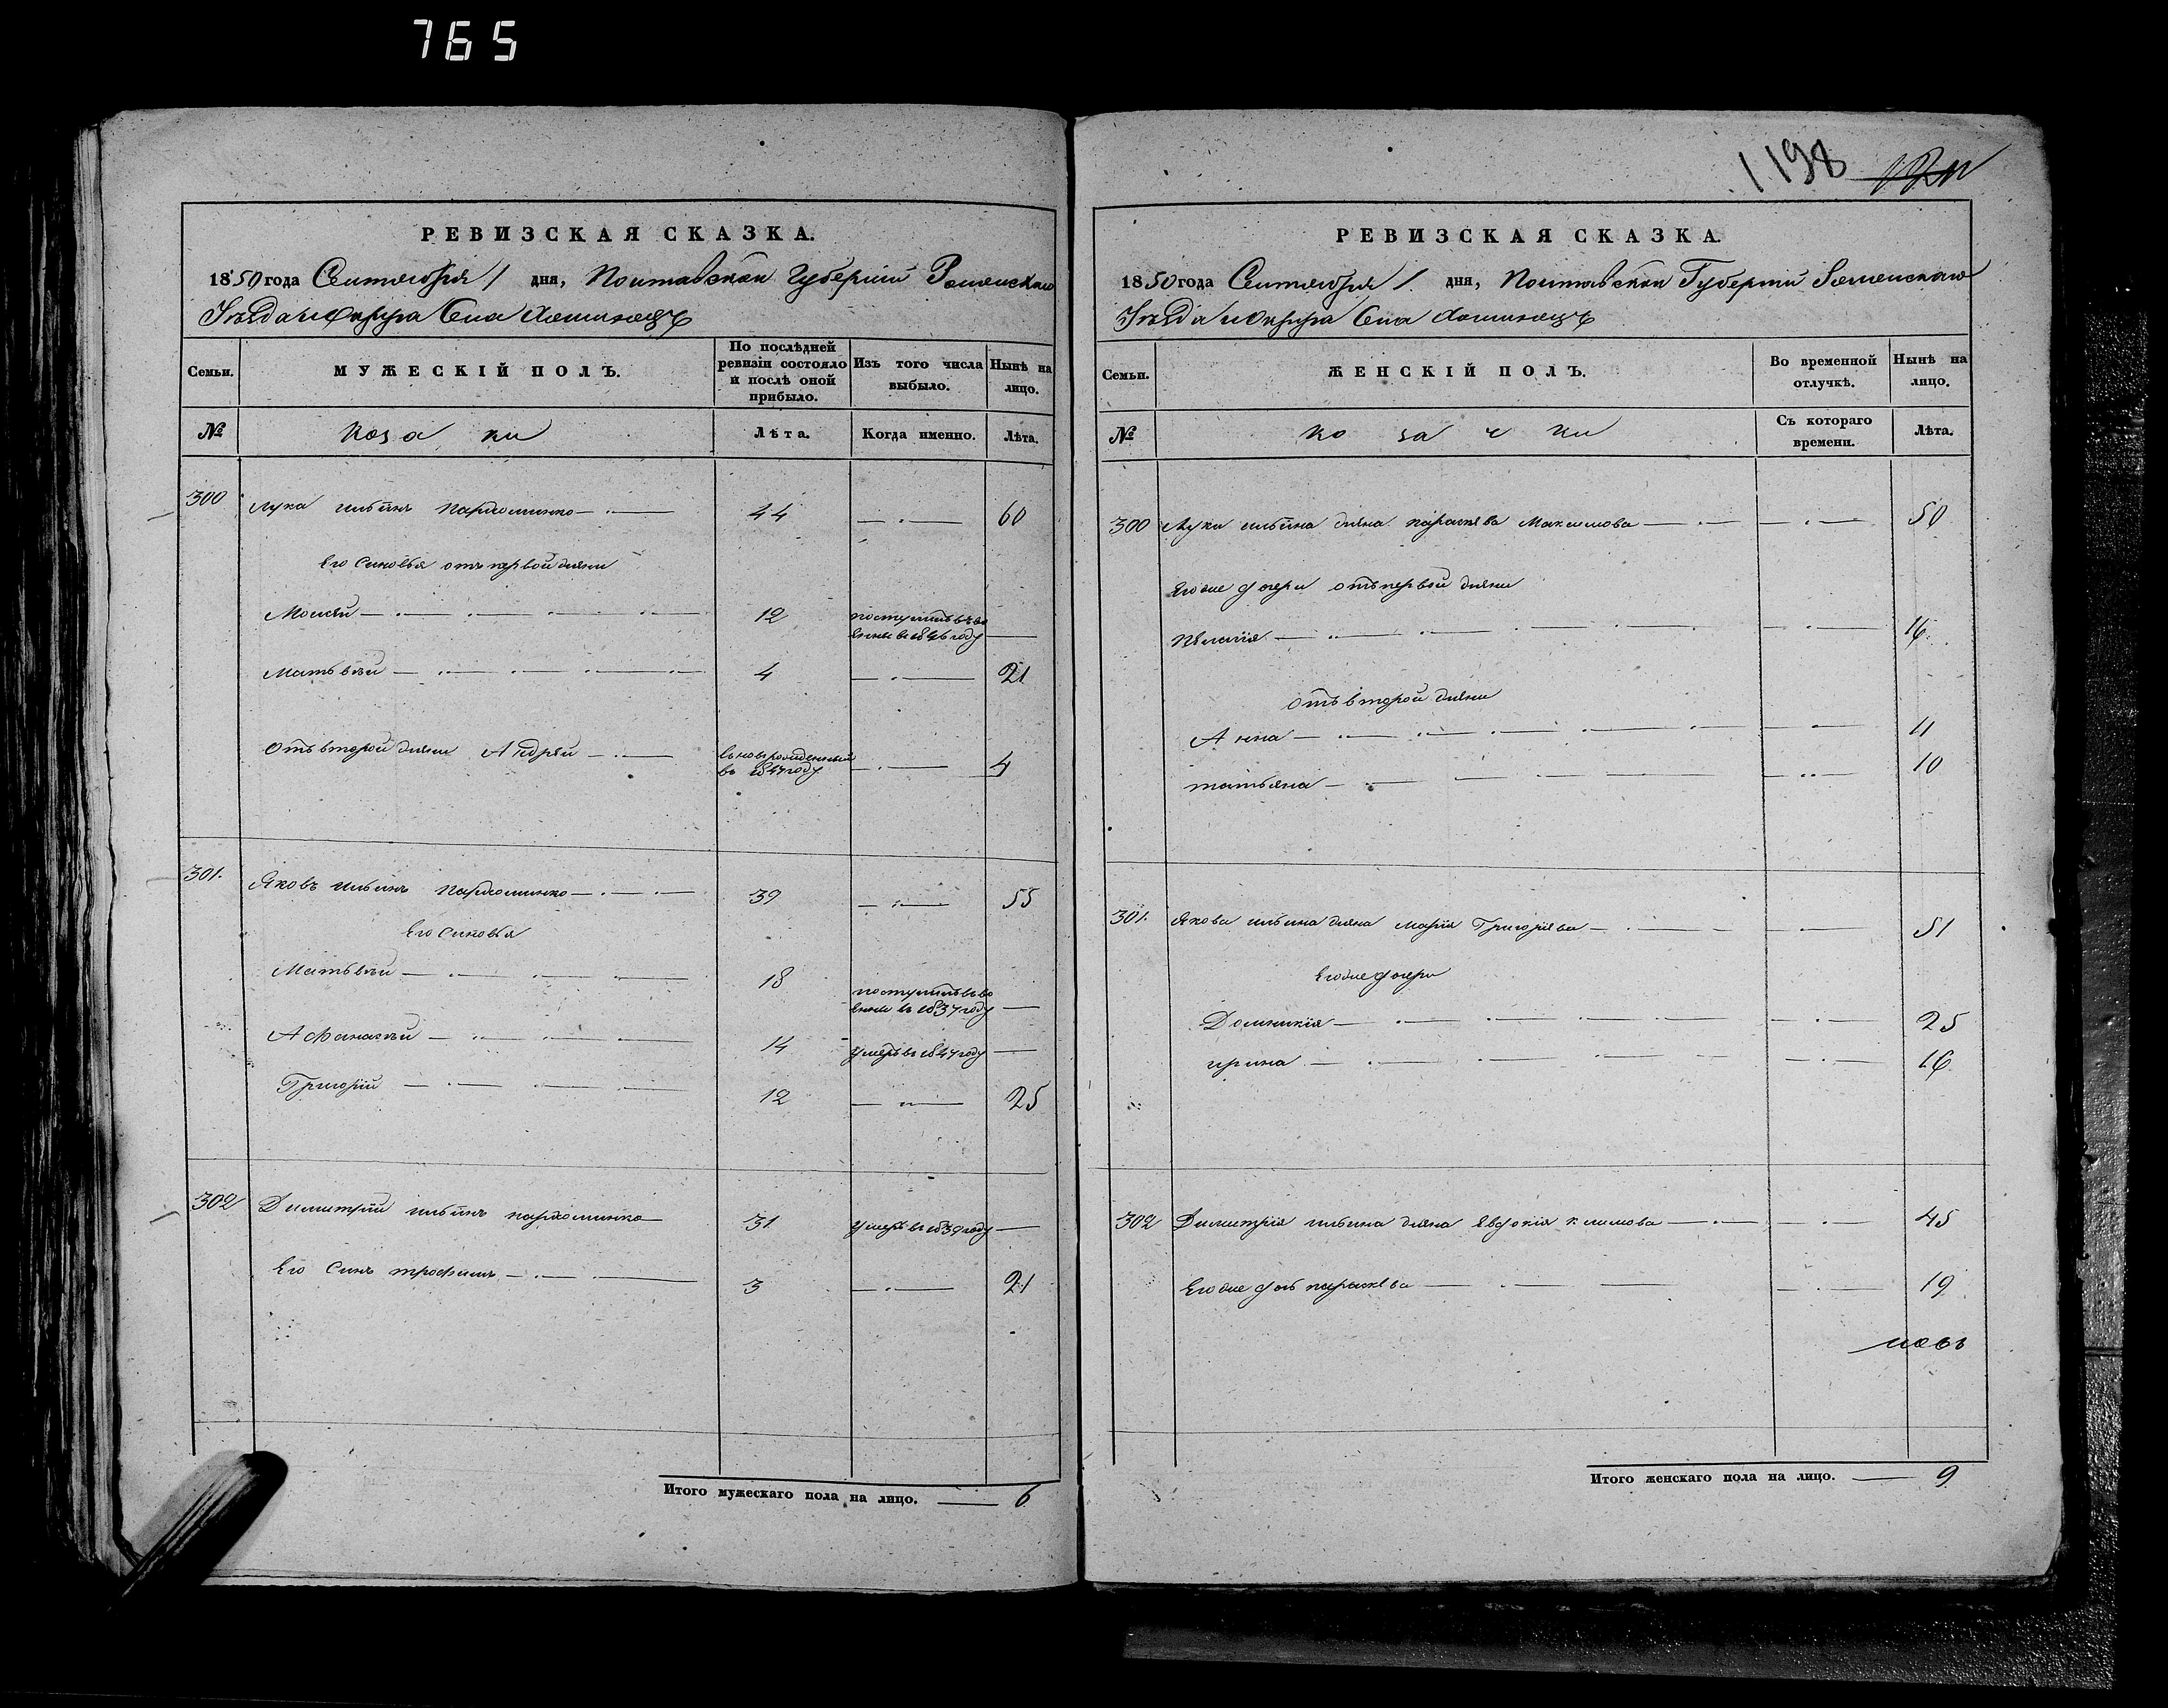 765
РЕВИЗСКАЯ СКАЗКА.
1850 года Сентября 1 дня, Полтавской Губернии Роменскаго
Уезда и Округа Села
Семьи.
МУЖЕСКІЙ ПОЛЪ.
По послѣдней ревизіи состояло и послѣ оной прибыло.
Изъ того числа выбыло.
Нынѣ на лицо.
№
Коза ки
Лѣта.
Когда именно.
Лѣта.
300 Лука Ильинъ Пархоминко 44 60
Его Синовья отъ первой жени
Мосѣй 12 поступилъ въ во
енные в 1846 году
Матьвѣй 4 21
Отъ второй жени Андрей въновърожденный
въ 1847 году 4
301. Яковъ Ильинъ Пархоминко 39 55
Его Синовья
Матьвѣй 18 поступилъ въ во
енные въ 1837 году
Афанасѣй 14 умеръ въ 1847 году
Григорій 12 25
302 Димитрій Ильинъ пархоминко 31 умеръ въ 1839 году
Его Синъ трофимъ 3 21
Итого мужескаго пола на лицо. 6
1198
РЕВИЗСКАЯ СКАЗКА.
1850 года Сентября 1. дня, Полтавской Губерніи Роменскаго
Уезда и Округа Села
Семьи.
ЖЕНСКІЙ ПОЛЪ.
Во временной отлучкѣ.
Нынѣ на лицо.
№
Ко за ч ки
Съ котораго времени.
Лѣта.
300 Луки Ильина жена параскева Максимова 50
Егоже дочери отъ первой жени
Пелагія 16
отъ второй жени
Анна 11
татьяна 10
301. Якова Ильина жена Марія Григоріева 51
Егоже дочери
Домникія 25
ирина 16
302 Димитрія Ильина жена Евдокія климова 45
Егоже дочь параскева 19
Итого женскаго пола на лицо. 9